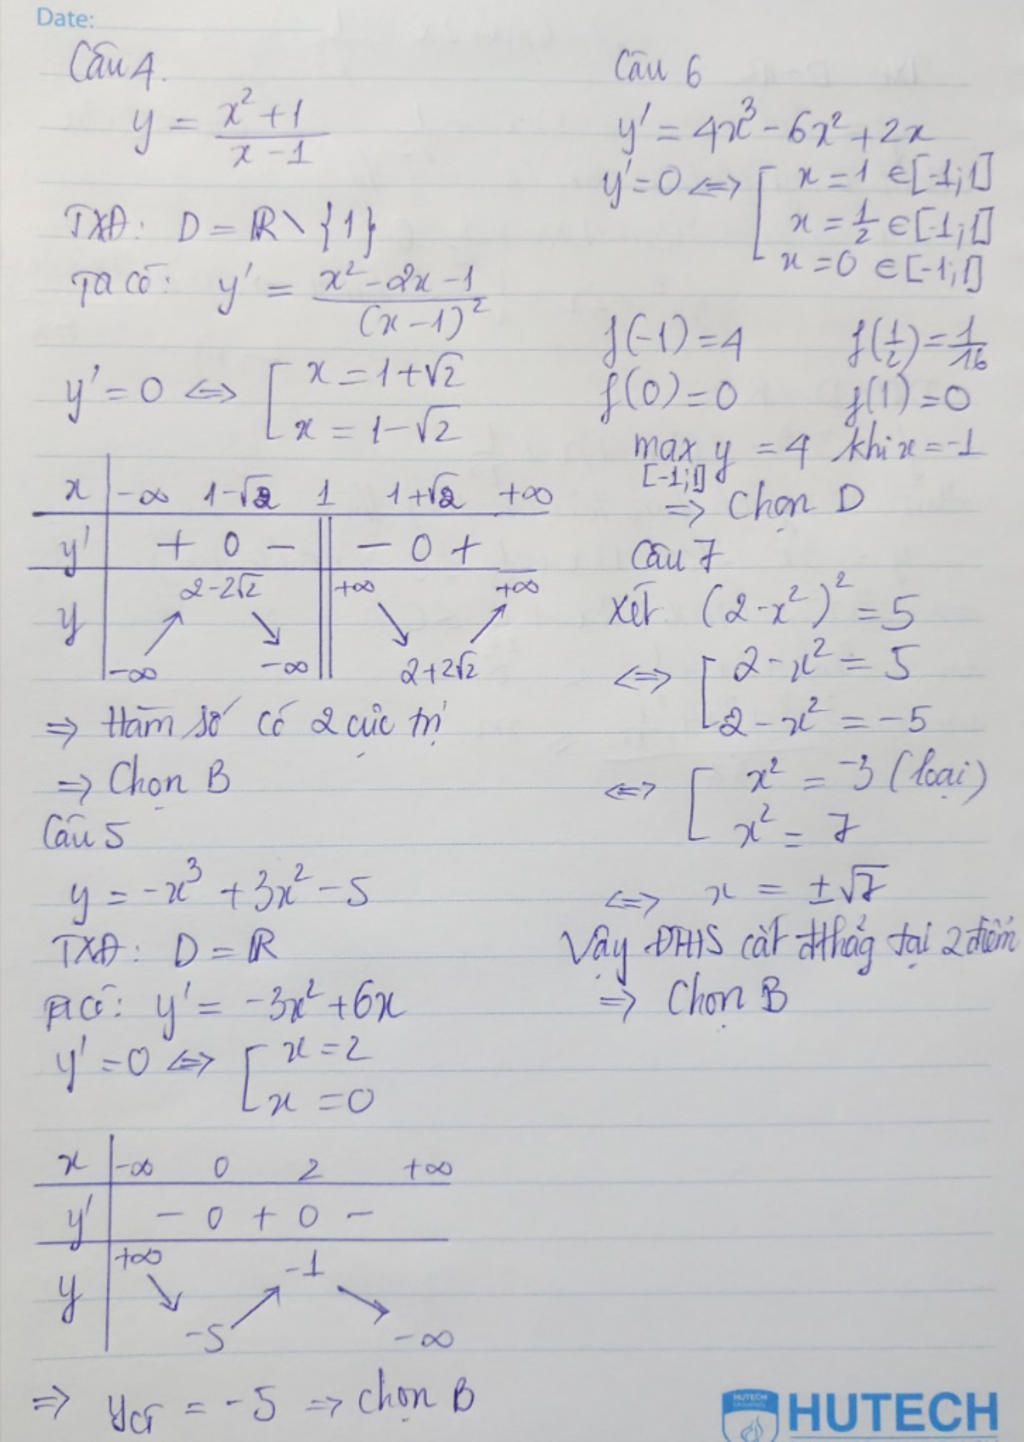 Date:
Câu 4.
y = \frac{x^2+1}{x-1}
TXĐ: D = ℝ \ {1}
Ta có: y' = \frac{x^2-2x-1}{(x-1)^2}
y' = 0 <=> [ x = 1+√2
x = 1-√2
x | -∞ 1-√2 1 1+√2 +∞
y' | + 0 - || - 0 +
y | -∞ ↗ 2-2√2 ↘ -∞ || +∞ ↘ 2+2√2 ↗ +∞
=> Hàm số có 2 cực trị
=> Chọn B
Câu 5
y = -x³ + 3x² - 5
TXĐ: D = ℝ
Ta có: y' = -3x² + 6x
y' = 0 <=> [ x = 2
x = 0
x | -∞ 0 2 +∞
y' | - 0 + 0 -
y | +∞ ↘ -5 ↗ -1 ↘ -∞
=> y_CT = -5 => chọn B
Câu 6
y' = 4x³ - 6x² + 2x
y' = 0 <=> [ x = 1 ∈ [-1;1]
x = \frac{1}{2} ∈ [-1;1]
x = 0 ∈ [-1;1]
f(-1) = 4 f(\frac{1}{2}) = \frac{1}{16}
f(0) = 0 f(1) = 0
max y = 4 khi x = -1
[-1;1]
=> Chọn D
Câu 7
Xét (2-x²)² = 5
<=> [ 2-x² = 5
2-x² = -5
<=> [ x² = -3 (loại)
x² = 7
<=> x = ±√7
Vậy ĐTHS cắt đthẳg tại 2 điểm
=> Chọn B
HUTECH
HUTECH